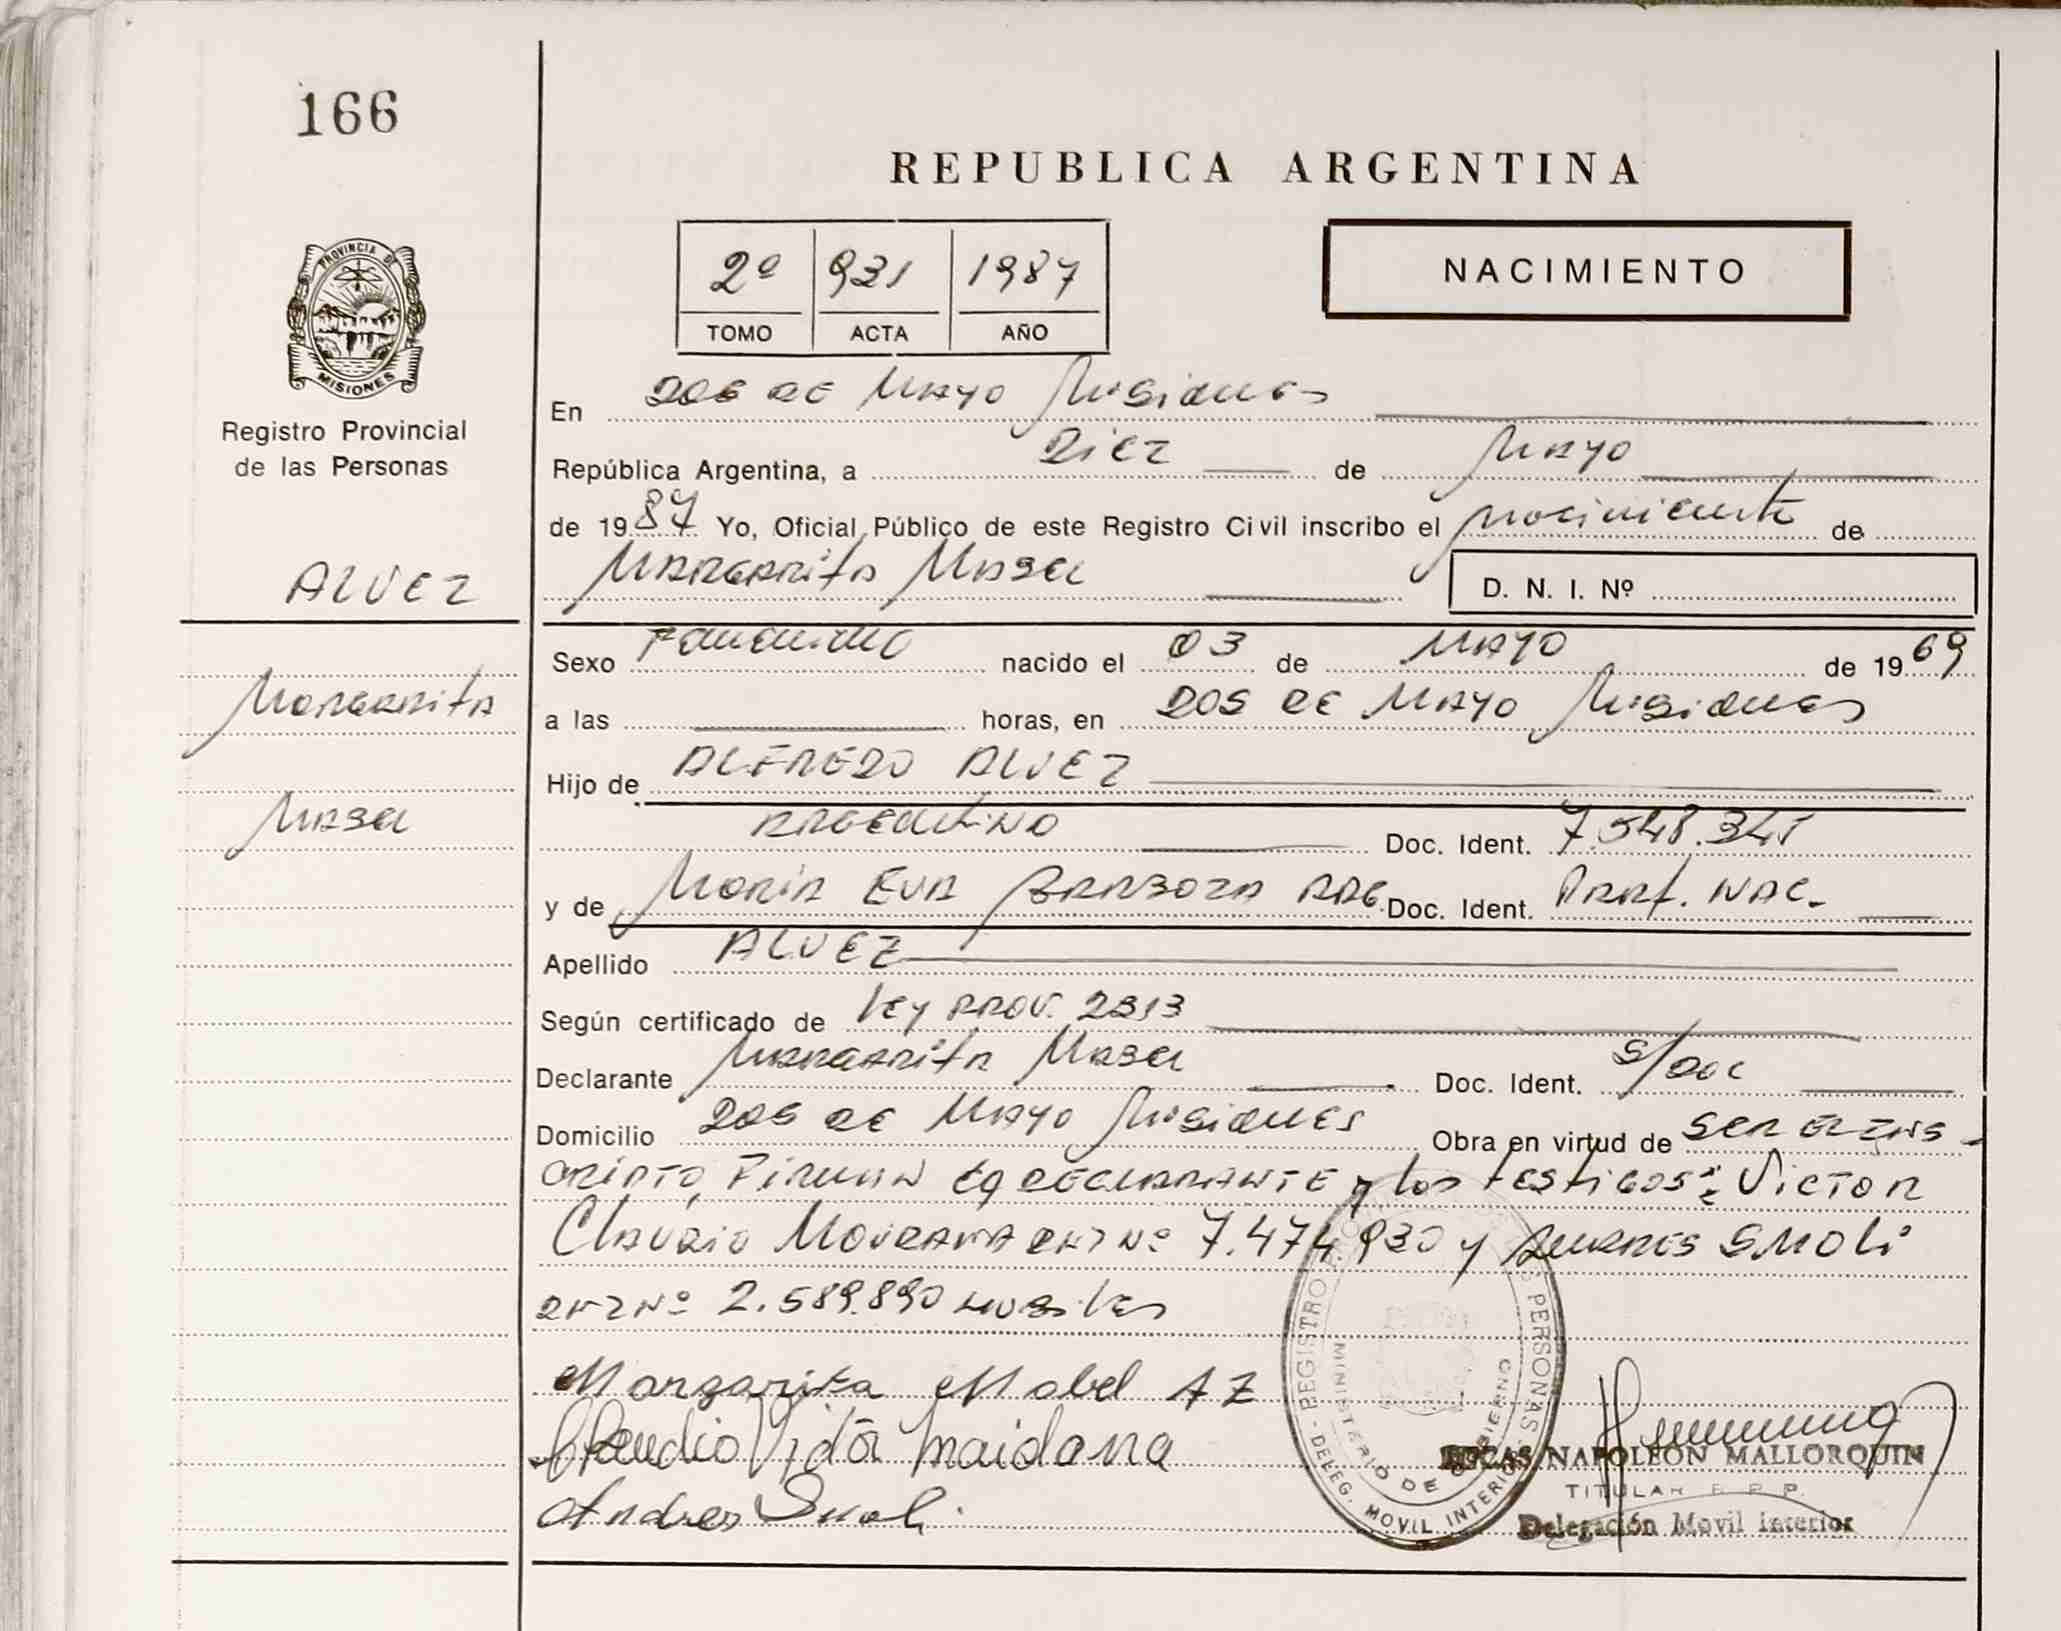 166
REPUBLICA ARGENTINA
2º 931 1987
TOMO ACTA AÑO
NACIMIENTO
PROVINCIA DE
MISIONES
Registro Provincial
de las Personas
ALVEZ
Margarita
Mabel
En DOS DE MAYO Misiones
República Argentina, a Diez de Mayo
de 1987 Yo, Oficial Público de este Registro Civil inscribo el nacimiento de
Margarita Mabel D. N. I. Nº
Sexo Femenino nacido el 03 de MAYO de 1969
a las horas, en DOS DE MAYO Misiones
Hijo de ALFREDO ALVEZ
ARGENTINO Doc. Ident. 7.548.341
y de María EVA BARBOZA ARG. Doc. Ident. Part. NAC.
Apellido ALVEZ
Según certificado de Ley PROV. 2313
Declarante Margarita Mabel Doc. Ident. S/Doc
Domicilio DOS DE MAYO Misiones Obra en virtud de
Firman DECLARANTE y los testigos: Victor
Claudio DNI Nº 7.474.930 y Andres SMOLi
DNI Nº 2.589.890
Margarita Mabel AZ
Claudio Vitor maidana
Andres Smoli
REGISTRO PERSONAS
DELEG. MOVIL INTERIOR
MINISTERIO DE GOBIERNO
LUCAS NAPOLEON MALLORQUIN
TITULAR
Delegación Movil Interior